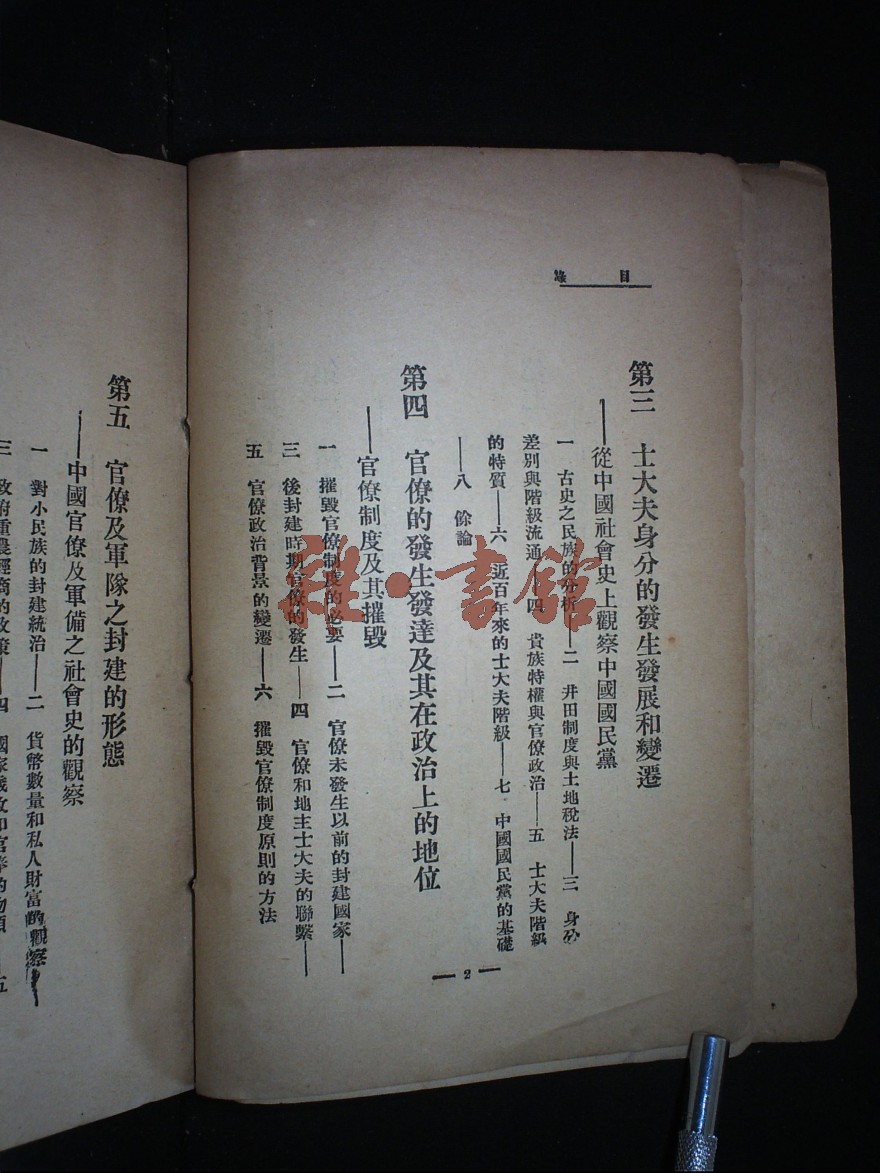 目錄
第三 士大夫身分的發生發展和變遷
——從中國社會史上觀察中國國民黨
一 古史之民族的分析——二 井田制度與土地稅法——三 身分
差別與階級流通——四 貴族特權與官僚政治——五 士大夫階級
的特質——六 近百年來的士大夫階級——七 中國國民黨的基礎
——八 餘論
第四 官僚的發生發達及其在政治上的地位
——官僚制度及其摧毀
一 摧毀官僚制度的必要——二 官僚未發生以前的封建國家——
三 後封建時期官僚的發生——四 官僚和地主士大夫的聯繫——
五 官僚政治背景的變遷——六 摧毀官僚制度原則的方法
— 2 —
第五 官僚及軍隊之封建的形態
——中國官僚及軍備之社會史的觀察
一 對小民族的封建統治——二 貨幣數量和私人財富的觀察——
三 政府重農輕商的政策——四
雜·書館